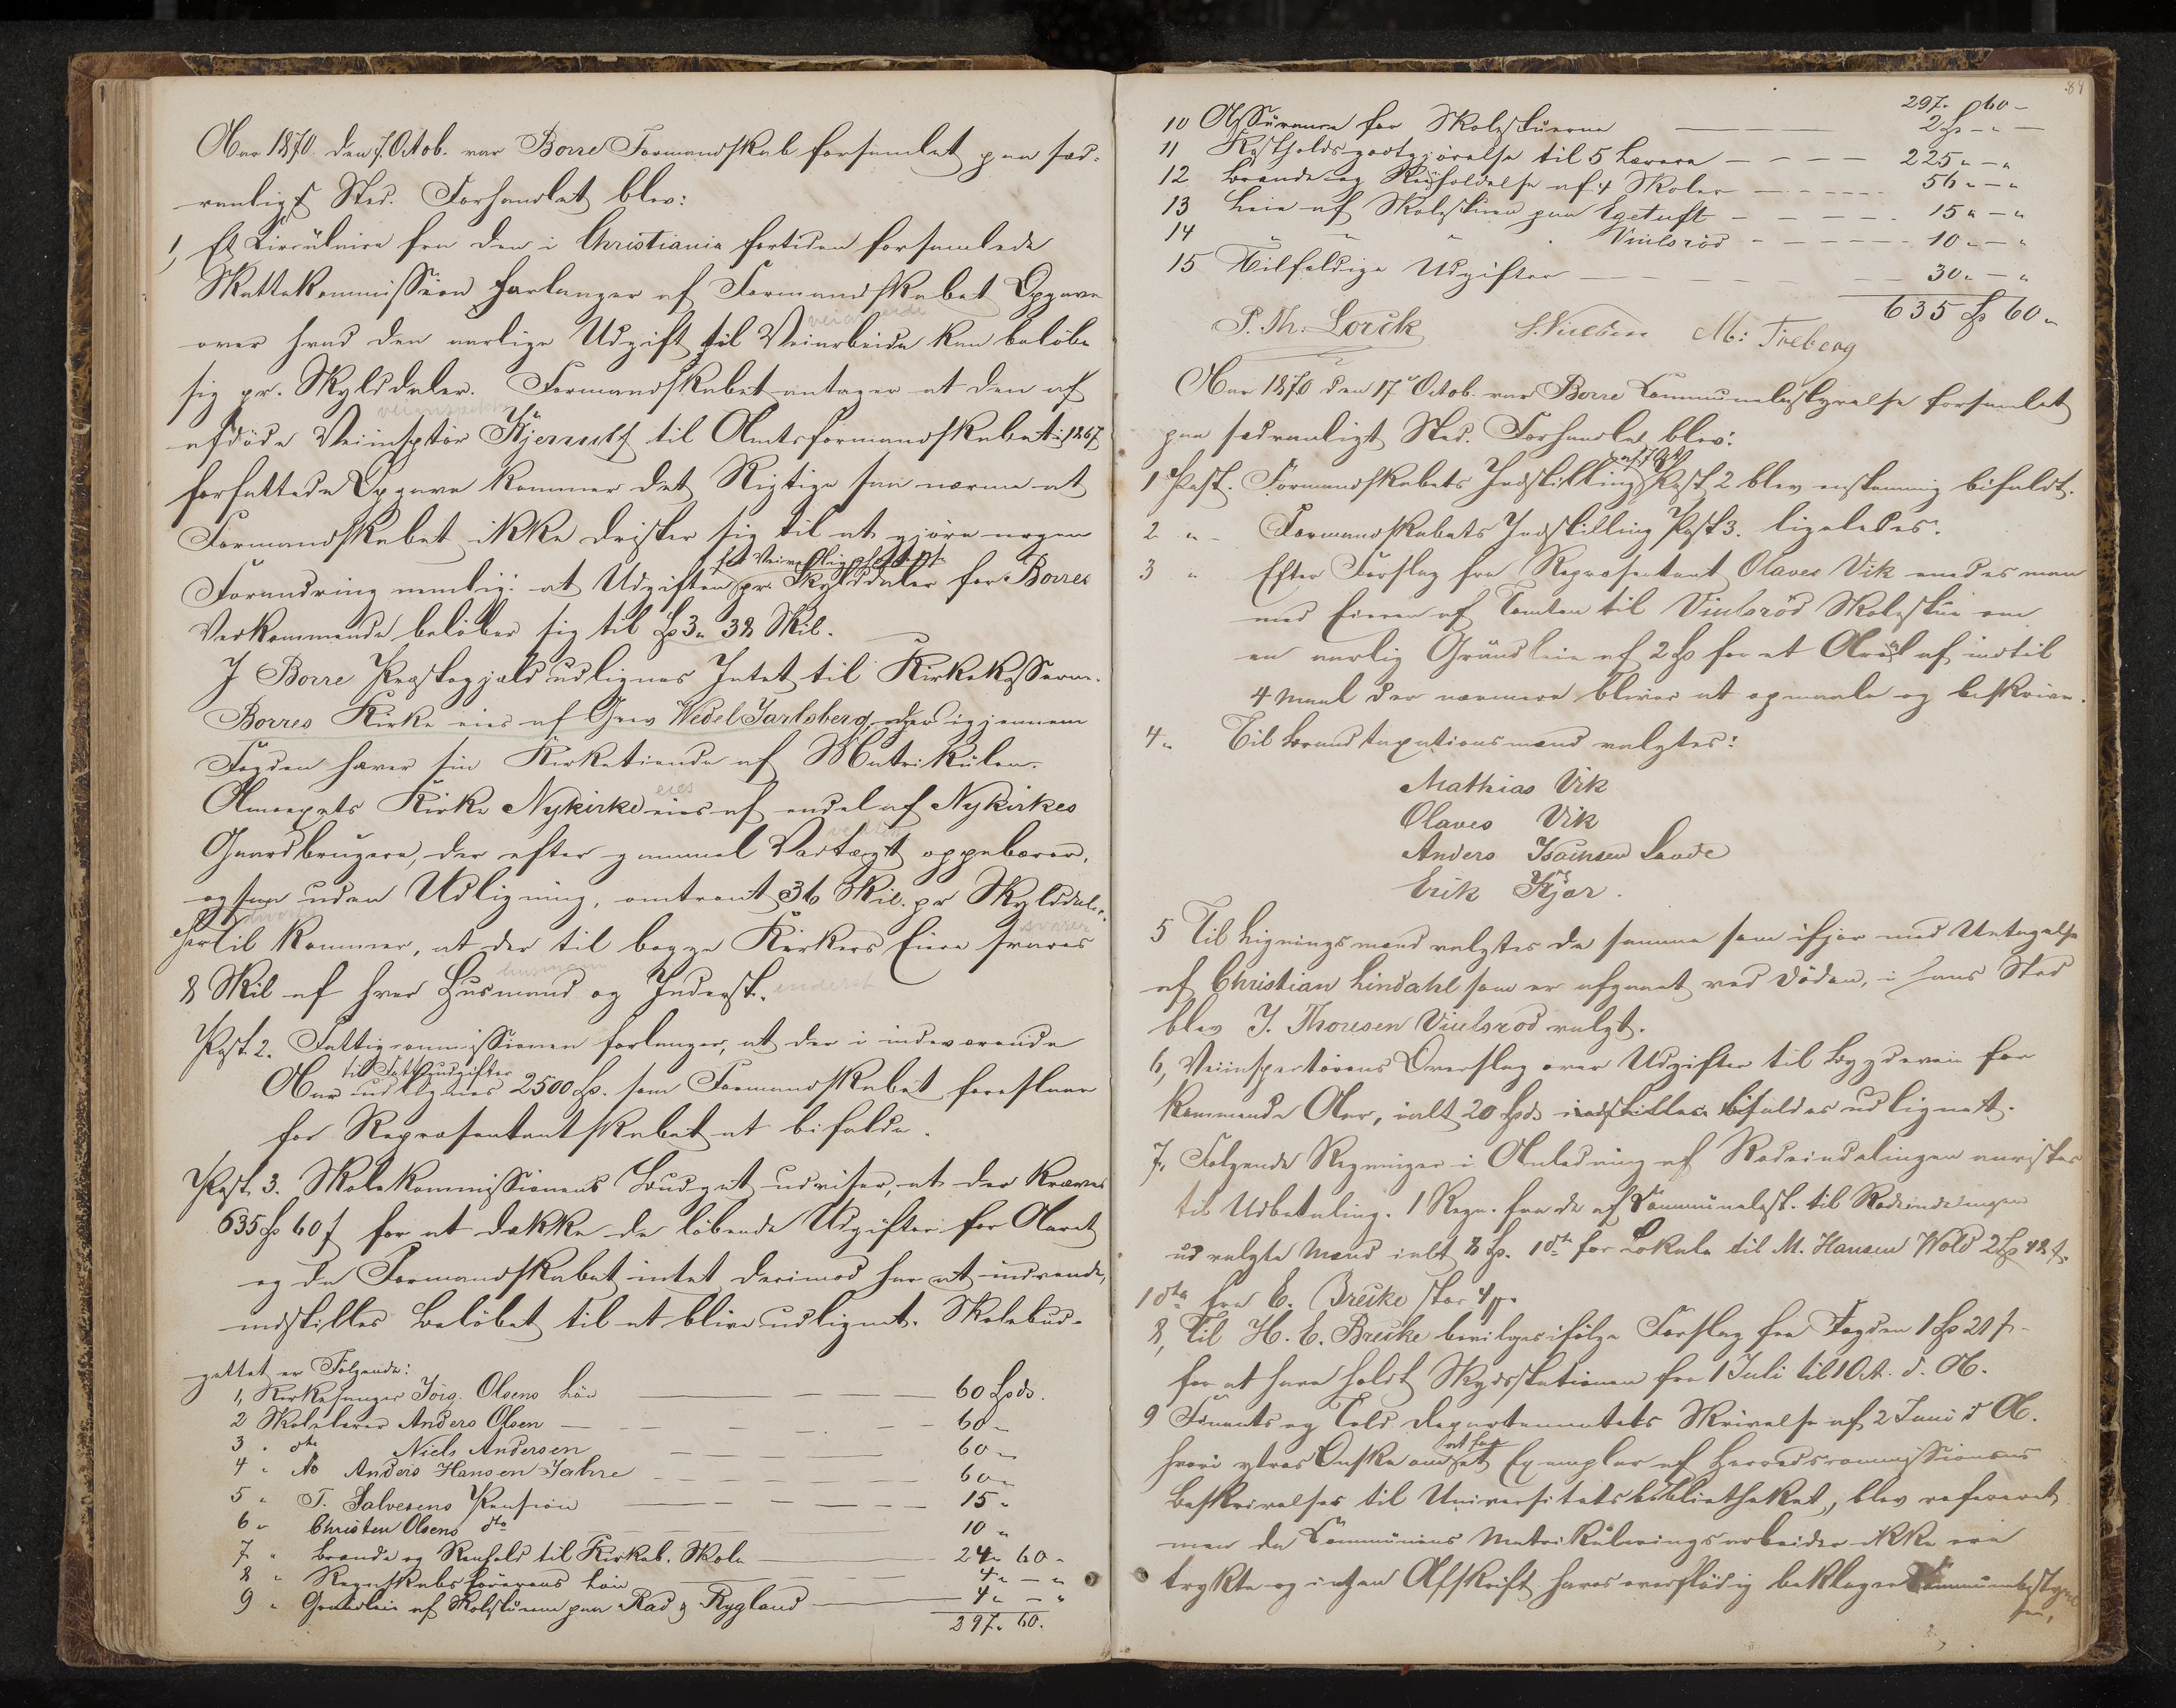 Aar 1870 den 7 Octob. var Borre Formandskab forsamlet paa sæd-
vanligt Sted. Forhandlet blev:
1, Et Circulaire fra den i Christiania fortiden forsamlede
Skattekommission forlanger af Formandskabet Opgave
veiarbeide
over hvad den aarlige Udgift til Veiarbeide kan beløbe
sig pr. Skylddaler. Formandskabet antager at den af
veiinspektør
afdøde Veiinsptør Kjerulf til Amtsformandskabet i 1867
forfattede Opgave kommer det Rigtige saa nærme at
Formandskabet ikke drister sig til at gjøre nogen
Forandring nemlig: at Udgiften pr. Skylddaler for Borres
Vedkommende beløber sig til Sp 3 " 38 Skil.
I Borre Præstegjæld udlignes Intet til Kirkekasserne.
Borres Kirke eies af Grev Wedel Jarlsberg, der igjennem
Fogden hæver sin Kirketiende af Matrikülen.
eies
Annexets Kirke Nykirke eies af endel af Nykirkes
vedtekt
Gaardbrugere, der efter gammel Vedtægt oppebærer,
ogsaa uden Udligning, omtrent 36 Skil. pr Skylddaler.
svares
Hertil kommer, at der til begge Kirkers Eiere svares
husmann
8 Skil af hver Husmand og Inderst. inderst
Post. 2. Fattigcommissionen forlanger, at der i indeværende
til Fattigudgifter
Aar udlignes 2500 Sp. som Formandskabet foreslaar
for Repræsentantskabet at bifalde.
Post 3. Skolekommissionens Budget udviser, at der kræves
635 Sp 60 f for at dække de løbende Udgifter for Aaret
og da Formandskabet intet derimod har at indvende,
indstilles Beløbet til at blive udlignet. Skolebud-
gettet er Følgende:
1, Kirkesanger Jörg. Olsens Løn — 60 Spds.
2 Skolelærer Anders Olsen — 60 "
3 " dto Niels Andersen — 60 "
4 " dto Anders Hansen Jahre — 60 "
5 " T. Salvesens Pension — 15 "
6 " Christen Olsens dto — 10 "
7 " Brænde og Renhold til Kirkeb. Skole — 24 " 60 "
8 " Regnskabsførerens Løn — 4 " — "
9 " Grundleie af Skolstuerne paa Rad & Rygland — 4 " — "
297 " 60.
84
297 " 60 —
10 Assurance for Skolestuerne — 2 Sp — " —
11 Kostholdsgodtgjørelse til 5 Lærere — 225 " — "
12 Brænde og Renholdelse af 4 Skoler — 56 " — "
13 Leie af Skolestuen paa Egetuft — 15 " — "
14 " " " " Viulsrød — 10 " — "
15 Tilfældige Udgifter — 30 " — "
635 Sp 60 "
P. Th. Lorck S. Nielsen M: Freberg
Aar 1870 den 17de Octob. var Borre Communebestyrelse forsamlet
paa sædvanligt Sted. Forhandlet blev:
1 Post. Formandskabets Indstilling Post 2 blev enstemmig bifaldt.
2 " Formandskabets Indstilling Post 3. ligeledes.
3 " Efter Forslag fra Repræsentant Olaves Vik enedes man
med Eieren af Tomten til Viulsrød Skolestue om
en aarlig Grundleie af 2 Sp for et Areal af indtil
4 Maal der nærmere bliver at opmaale og beskrive.
4 " Til Brandtaxationsmænd valgtes:
Mathias Vik
Olaves Vik
Anders Isachsen Sande
Erik Kjær.
5 Til Ligningsmænd valgtes de samme som ifjor med Untagelse
af Christian Lindahl som er afgaaet ved Døden, i hans Sted
blev J. Thoresen Viulsrød valgt.
6, Veiinspectørens Overslag over Udgifter til Bygdeveie for
kommende Aar, ialt 20 Spd bifaldes udlignet.
7, Følgende Regninger i Anledning af Rodeindelingen anvistes
til Udbetaling. 1 Regn. fra de af Communebest. til Rodeindelingen
udvalgte Mænd ialt 8 Sp. 1 dto for Lokale til M. Hansen Wold 2 Sp 48 f.
1 dto fra E. Breike stor 4
8, Til H. E. Breike bevilges ifølge Forslag fra Fogden 1 Sp 21 f
for at have holdt Skydsstationen fra 1 Juli til 1 Oct. d. A.
9 Finants og Told Departementets Skrivelse af 2 Juni d A.
hvori ytres Ønske om et Exemplar af Herredscommissionens
Beskrivelser til Universitetsbibliotheket, blev refereret
men da Communens Matrikuleringsarbeider ikke ere
trykte og ingen Afskrift haves overflødig beklager Communebestyrel
sen,